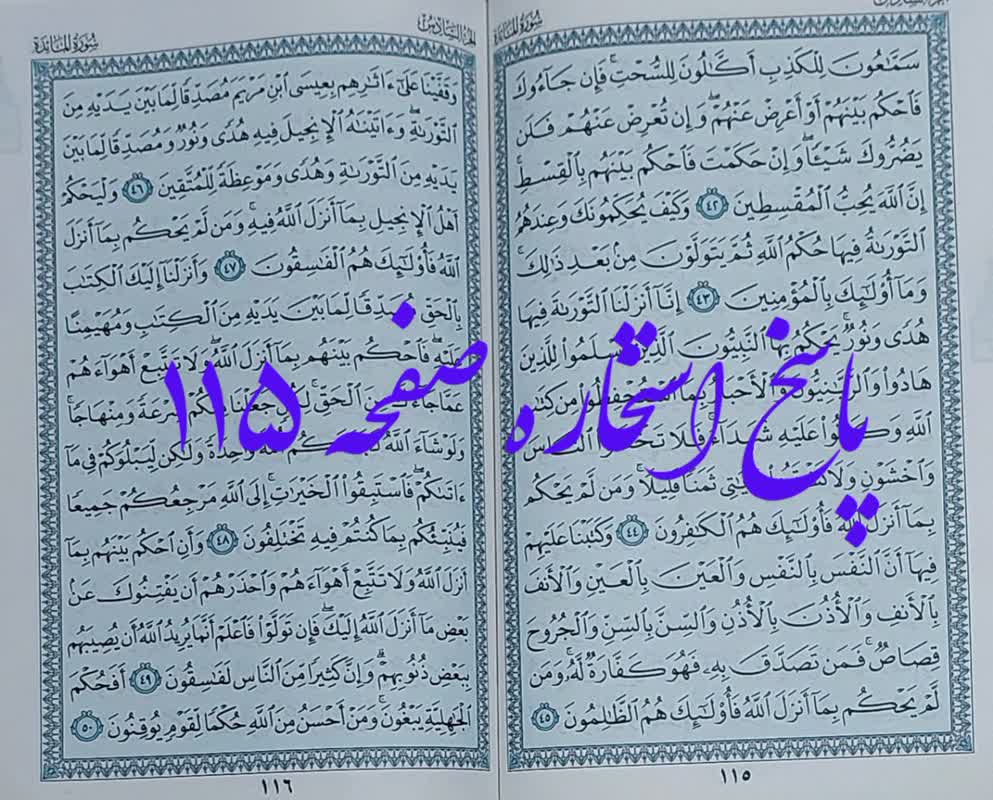 سُورَةُ المَائدة
سَمَّٰعُونَ لِلْكَذِبِ أَكَّٰلُونَ لِلسُّحْتِ ۚ فَإِن جَآءُوكَ
فَٱحْكُم بَيْنَهُمْ أَوْ أَعْرِضْ عَنْهُمْ ۖ وَإِن تُعْرِضْ عَنْهُمْ فَلَن
يَضُرُّوكَ شَيْـًٔا ۖ وَإِنْ حَكَمْتَ فَٱحْكُم بَيْنَهُم بِٱلْقِسْطِ ۚ
إِنَّ ٱللَّهَ يُحِبُّ ٱلْمُقْسِطِينَ ٤٢ وَكَيْفَ يُحَكِّمُونَكَ وَعِندَهُمُ
ٱلتَّوْرَىٰةُ فِيهَا حُكْمُ ٱللَّهِ ثُمَّ يَتَوَلَّوْنَ مِنۢ بَعْدِ ذَٰلِكَ ۚ
وَمَآ أُو۟لَٰٓئِكَ بِٱلْمُؤْمِنِينَ ٤٣ إِنَّآ أَنزَلْنَا ٱلتَّوْرَىٰةَ فِيهَا
هُدًى وَنُورٌ ۚ يَحْكُمُ بِهَا ٱلنَّبِيُّونَ ٱلَّذِينَ أَسْلَمُوا۟ لِلَّذِينَ
هَادُوا۟ وَٱلرَّبَّٰنِيُّونَ وَٱلْأَحْبَارُ بِمَا ٱسْتُحْفِظُوا۟ مِن كِتَٰبِ
ٱللَّهِ وَكَانُوا۟ عَلَيْهِ شُهَدَآءَ ۚ فَلَا تَخْشَوُا۟ ٱلنَّاسَ
وَٱخْشَوْنِ وَلَا تَشْتَرُوا۟ بِـَٔايَٰتِى ثَمَنًا قَلِيلًا ۚ وَمَن لَّمْ يَحْكُم
بِمَآ أَنزَلَ ٱللَّهُ فَأُو۟لَٰٓئِكَ هُمُ ٱلْكَٰفِرُونَ ٤٤ وَكَتَبْنَا عَلَيْهِمْ
فِيهَآ أَنَّ ٱلنَّفْسَ بِٱلنَّفْسِ وَٱلْعَيْنَ بِٱلْعَيْنِ وَٱلْأَنفَ
بِٱلْأَنفِ وَٱلْأُذُنَ بِٱلْأُذُنِ وَٱلسِّنَّ بِٱلسِّنِّ وَٱلْجُرُوحَ
قِصَاصٌ ۚ فَمَن تَصَدَّقَ بِهِۦ فَهُوَ كَفَّارَةٌ لَّهُۥ ۚ وَمَن
لَّمْ يَحْكُم بِمَآ أَنزَلَ ٱللَّهُ فَأُو۟لَٰٓئِكَ هُمُ ٱلظَّٰلِمُونَ ٤٥
١١٥
الجزء السَّادِس
سُورَةُ المَائدة
وَقَفَّيْنَا عَلَىٰٓ ءَاثَٰرِهِم بِعِيسَى ٱبْنِ مَرْيَمَ مُصَدِّقًا لِّمَا بَيْنَ يَدَيْهِ مِنَ
ٱلتَّوْرَىٰةِ ۖ وَءَاتَيْنَٰهُ ٱلْإِنجِيلَ فِيهِ هُدًى وَنُورٌ وَمُصَدِّقًا لِّمَا بَيْنَ
يَدَيْهِ مِنَ ٱلتَّوْرَىٰةِ وَهُدًى وَمَوْعِظَةً لِّلْمُتَّقِينَ ٤٦ وَلْيَحْكُمْ
أَهْلُ ٱلْإِنجِيلِ بِمَآ أَنزَلَ ٱللَّهُ فِيهِ ۚ وَمَن لَّمْ يَحْكُم بِمَآ أَنزَلَ
ٱللَّهُ فَأُو۟لَٰٓئِكَ هُمُ ٱلْفَٰسِقُونَ ٤٧ وَأَنزَلْنَآ إِلَيْكَ ٱلْكِتَٰبَ
بِٱلْحَقِّ مُصَدِّقًا لِّمَا بَيْنَ يَدَيْهِ مِنَ ٱلْكِتَٰبِ وَمُهَيْمِنًا
عَلَيْهِ ۖ فَٱحْكُم بَيْنَهُم بِمَآ أَنزَلَ ٱللَّهُ ۖ وَلَا تَتَّبِعْ أَهْوَآءَهُمْ
عَمَّا جَآءَكَ مِنَ ٱلْحَقِّ ۚ لِكُلٍّ جَعَلْنَا مِنكُمْ شِرْعَةً وَمِنْهَاجًا ۚ
وَلَوْ شَآءَ ٱللَّهُ لَجَعَلَكُمْ أُمَّةً وَٰحِدَةً وَلَٰكِن لِّيَبْلُوَكُمْ فِى مَآ
ءَاتَىٰكُمْ ۖ فَٱسْتَبِقُوا۟ ٱلْخَيْرَٰتِ ۚ إِلَى ٱللَّهِ مَرْجِعُكُمْ جَمِيعًا
فَيُنَبِّئُكُم بِمَا كُنتُمْ فِيهِ تَخْتَلِفُونَ ٤٨ وَأَنِ ٱحْكُم بَيْنَهُم بِمَآ
أَنزَلَ ٱللَّهُ وَلَا تَتَّبِعْ أَهْوَآءَهُمْ وَٱحْذَرْهُمْ أَن يَفْتِنُوكَ عَنۢ
بَعْضِ مَآ أَنزَلَ ٱللَّهُ إِلَيْكَ ۖ فَإِن تَوَلَّوْا۟ فَٱعْلَمْ أَنَّمَا يُرِيدُ ٱللَّهُ أَن يُصِيبَهُم
بِبَعْضِ ذُنُوبِهِمْ ۗ وَإِنَّ كَثِيرًا مِّنَ ٱلنَّاسِ لَفَٰسِقُونَ ٤٩ أَفَحُكْمَ
ٱلْجَٰهِلِيَّةِ يَبْغُونَ ۚ وَمَنْ أَحْسَنُ مِنَ ٱللَّهِ حُكْمًا لِّقَوْمٍ يُوقِنُونَ ٥٠
١١٦
پاسخ استخاره صفحه ۱۱۵